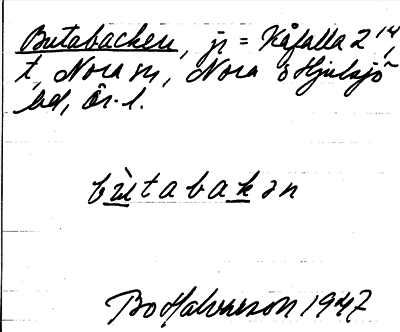 Butabäcken, jr = Kåfalla 2¹⁴,
t, Nora sn, Nora o Hjulsjö
bd, Ör. l.
bu̇tabakən
Bo Halvarson 1947